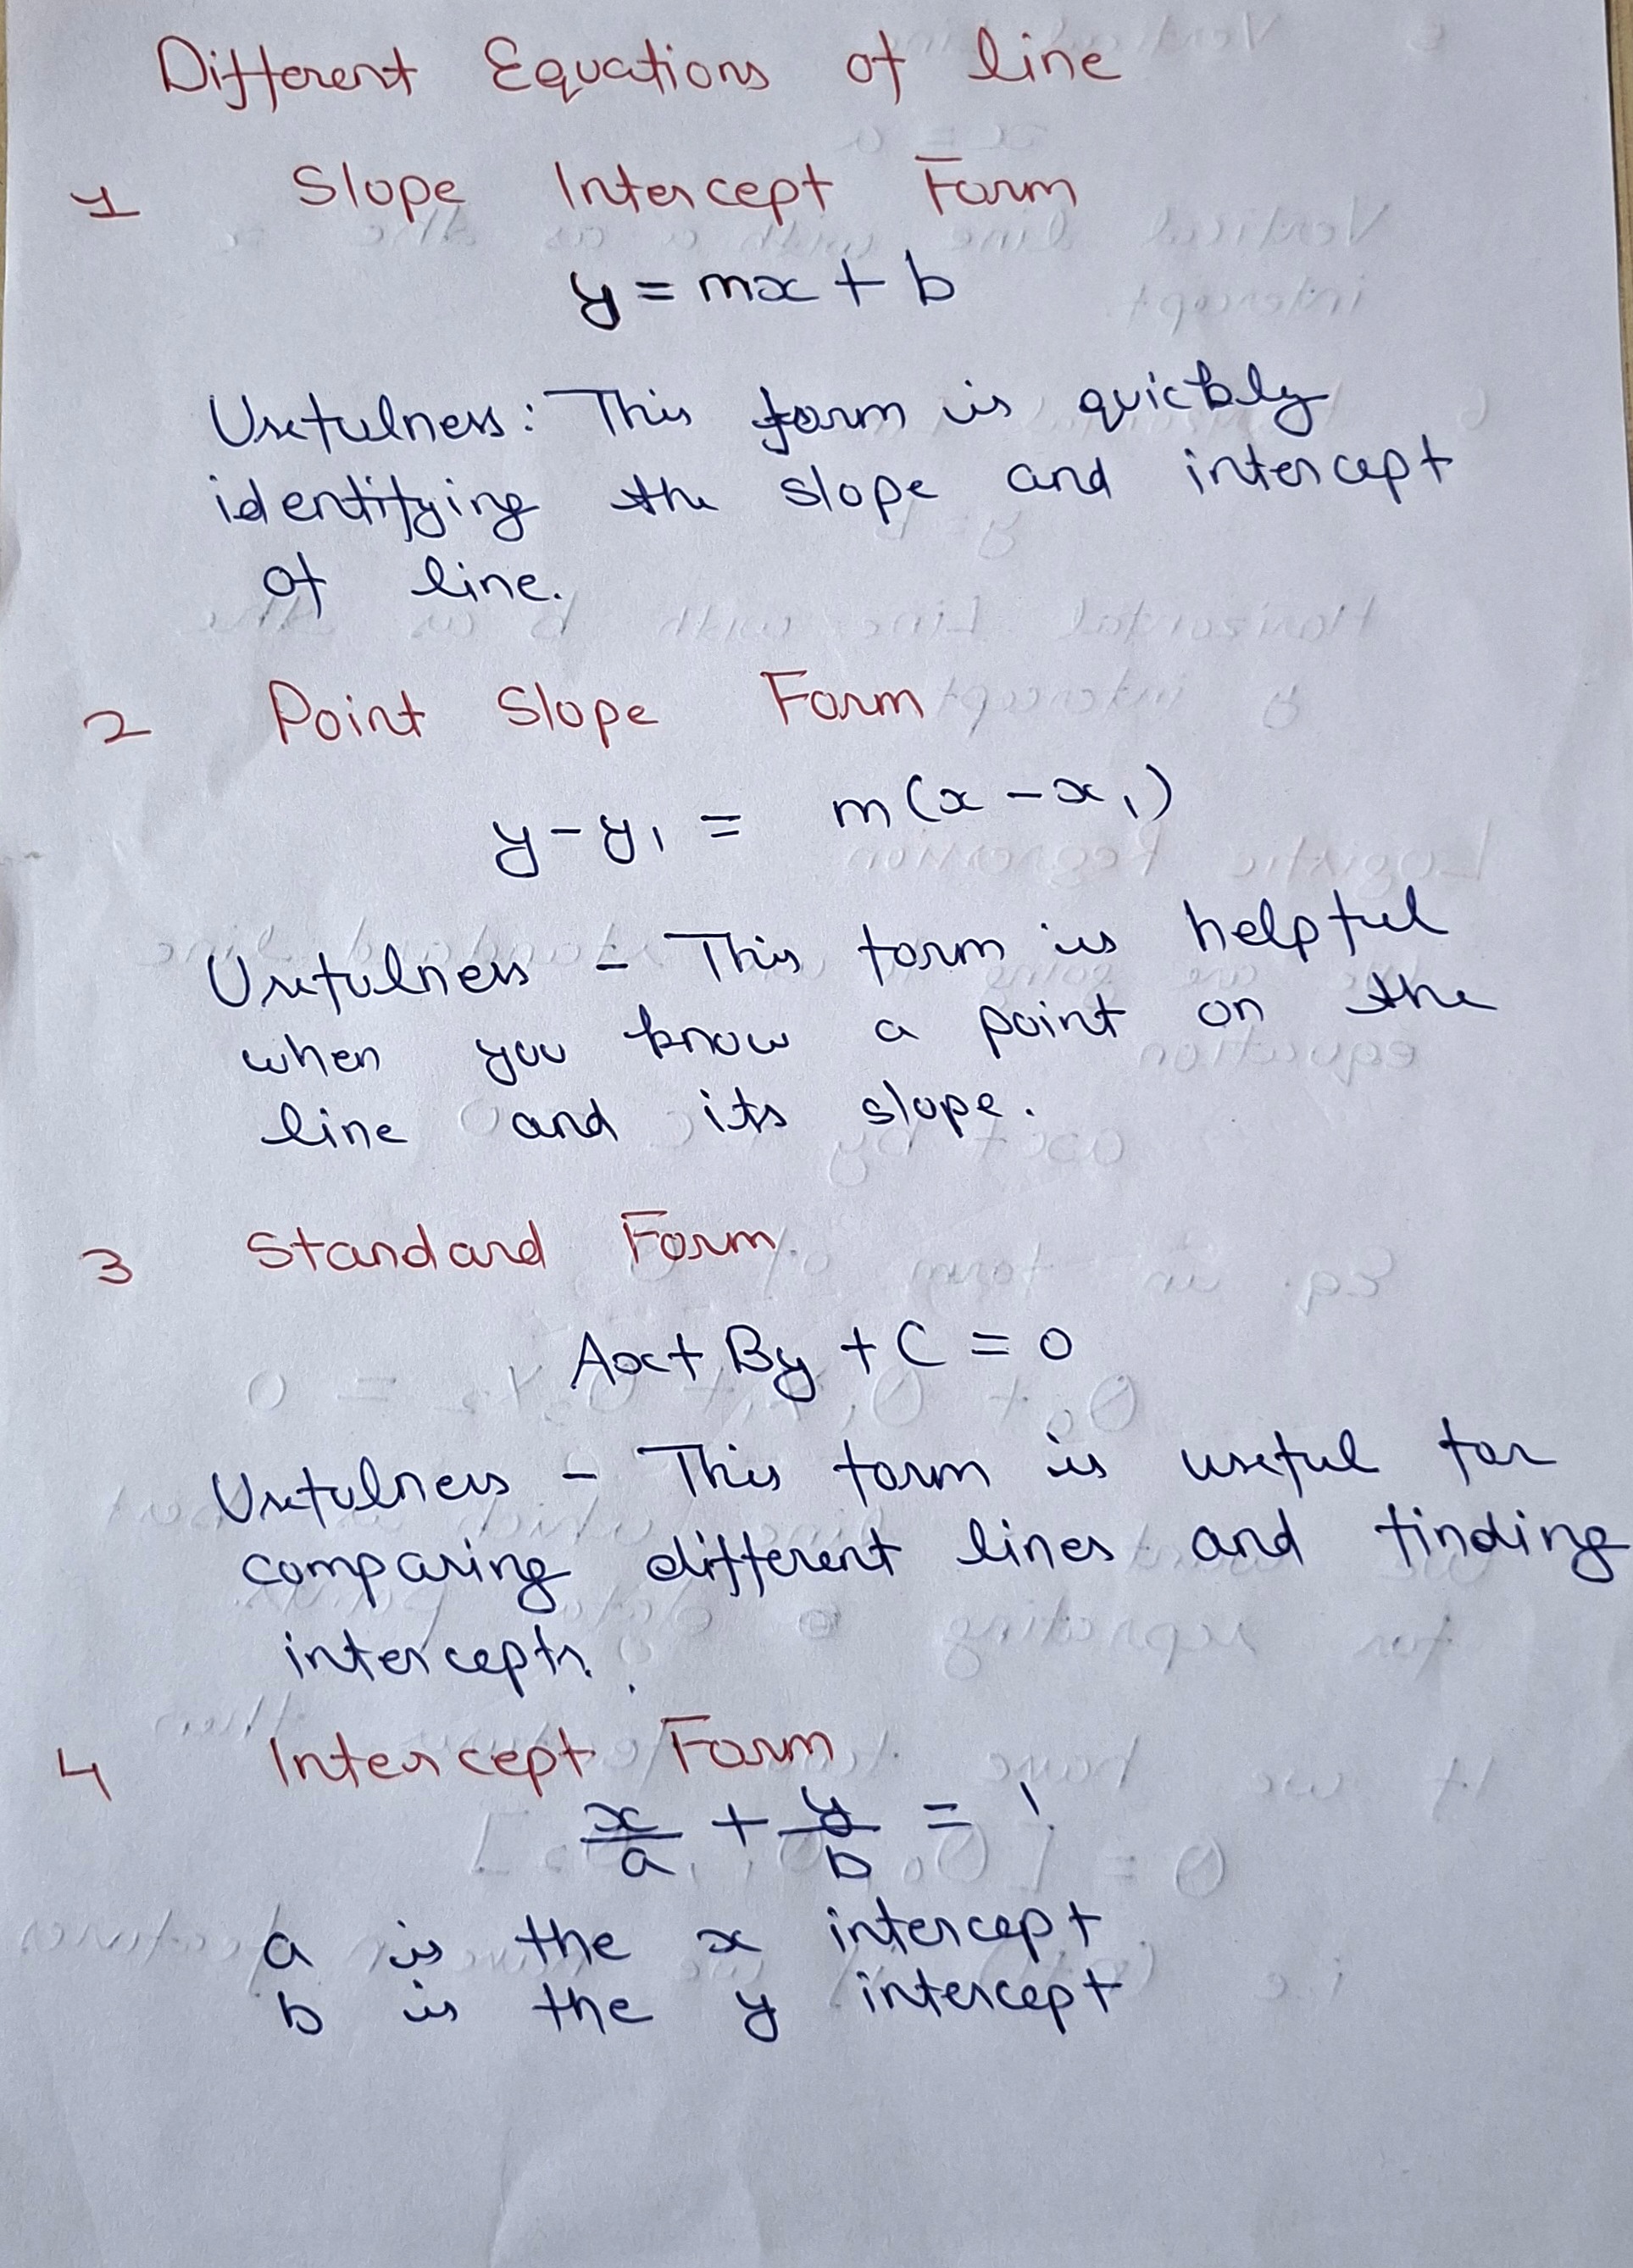 Different Equations of line
1 Slope Intercept Form
y = mx + b
Usefulness: This form is quickly
identifying the slope and intercept
of line.
2 Point Slope Form
y - y₁ = m(x - x₁)
Usefulness - This form is helpful
when you know a point on the
line and its slope.
3 Standard Form
Ax + By + C = 0
Usefulness - This form is useful for
comparing different lines and finding
intercepts.
4 Intercept Form
x/a + y/b = 1
a is the x intercept
b is the y intercept